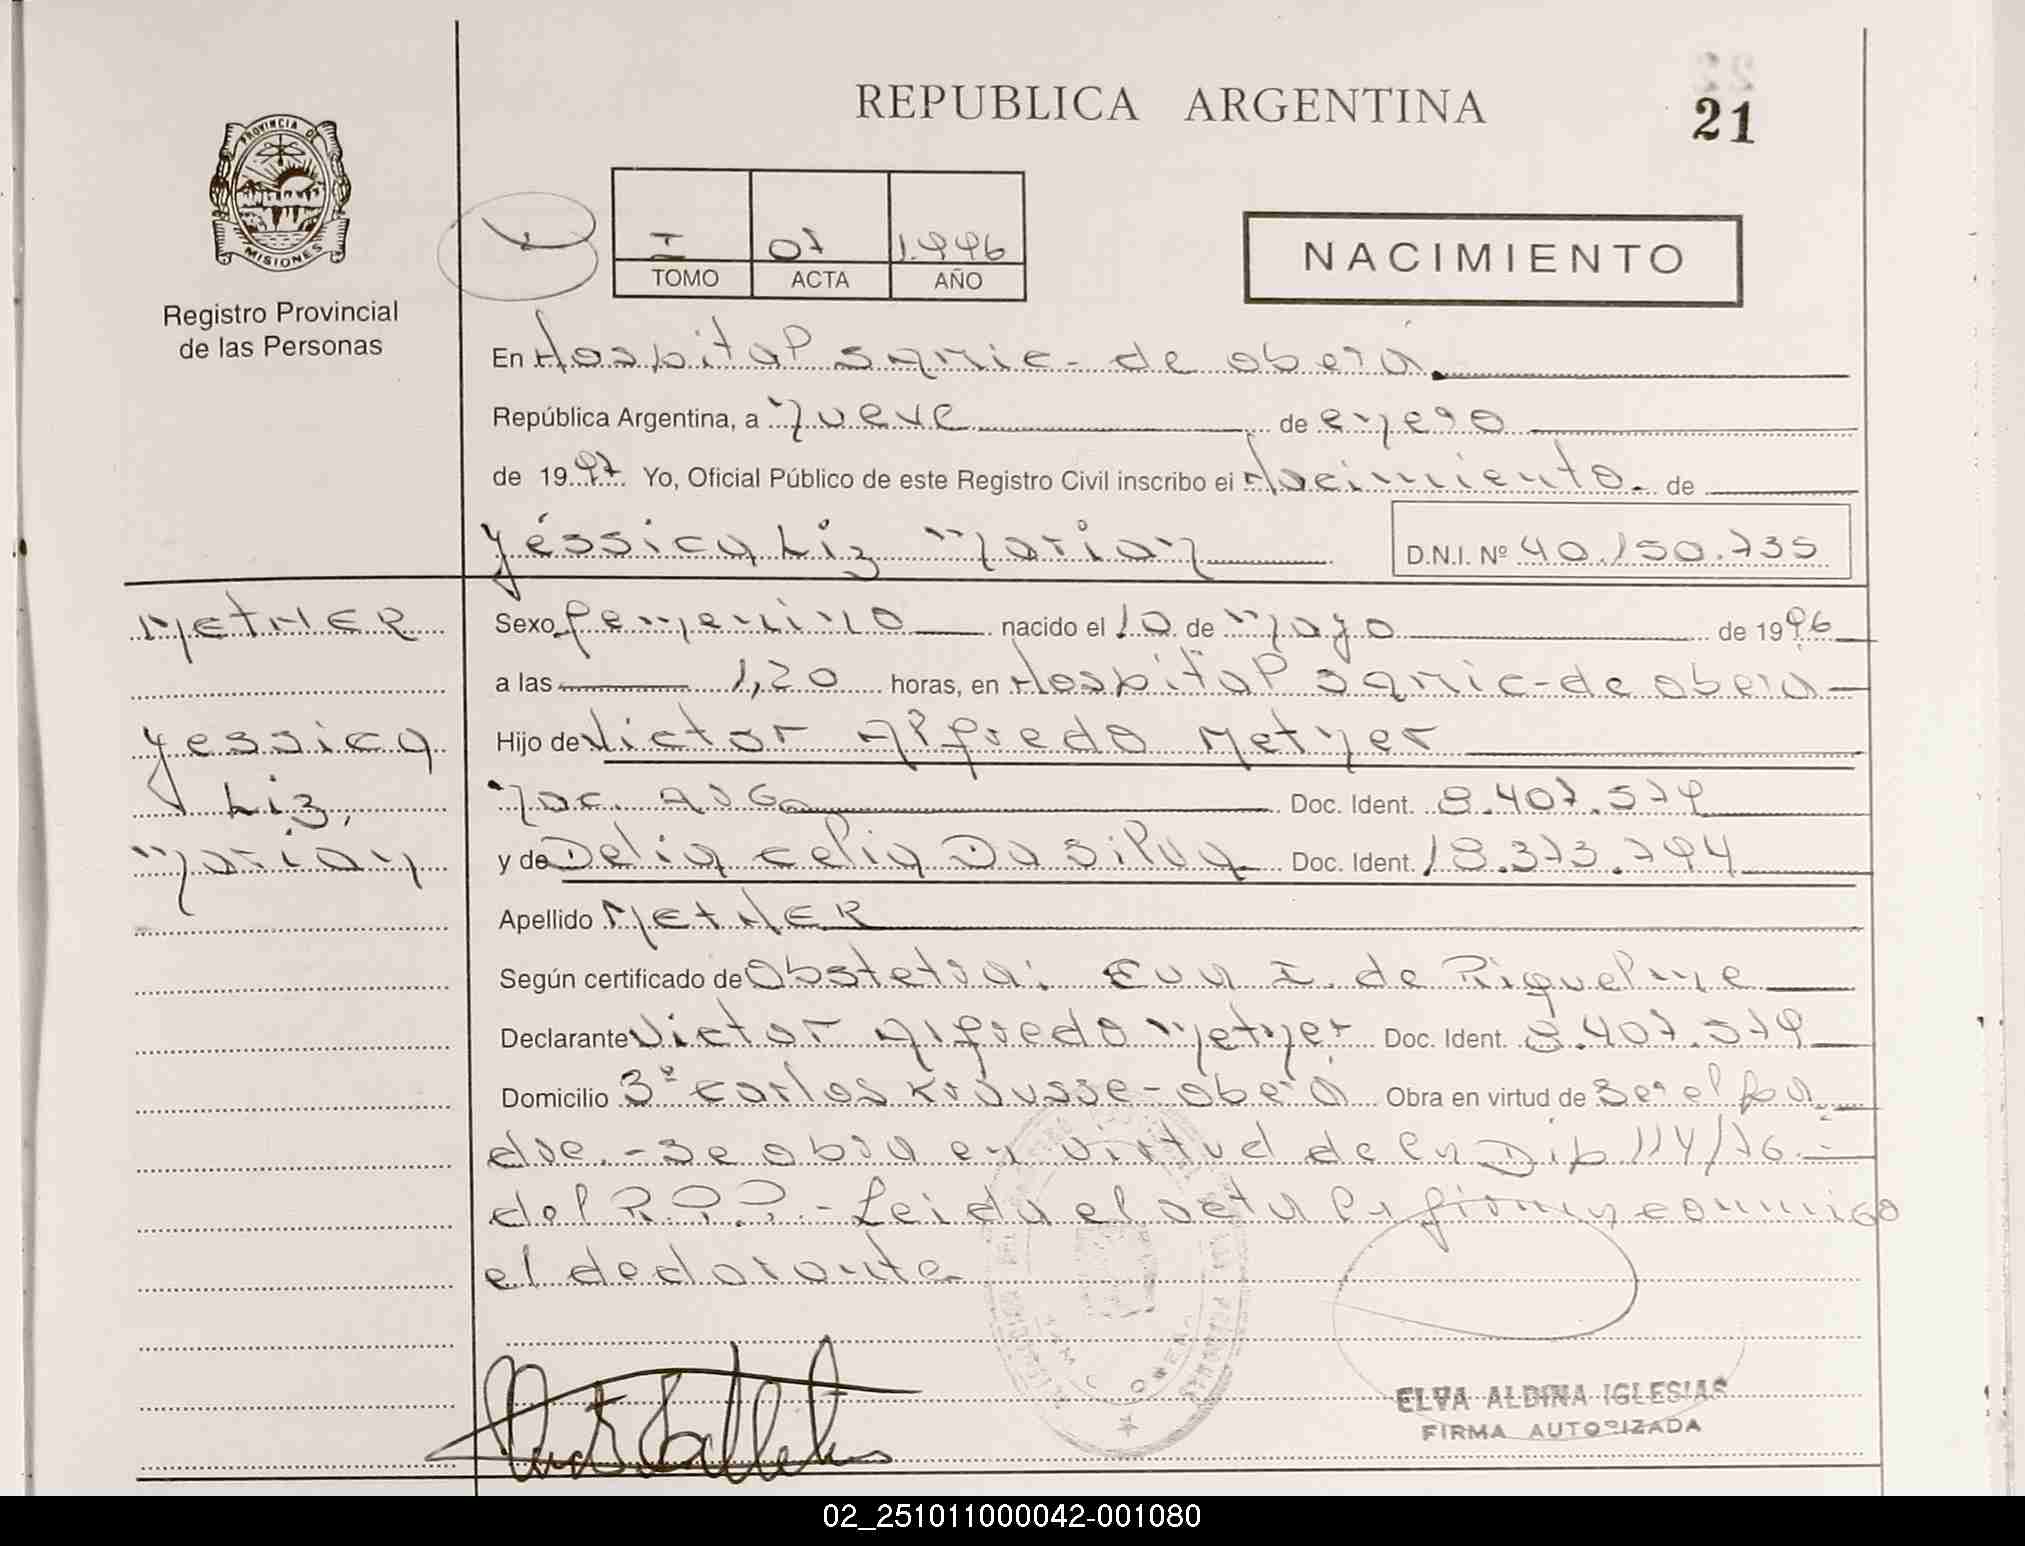 REPUBLICA ARGENTINA
21
PROVINCIA DE
MISIONES
Registro Provincial
de las Personas
I 07 1.996
TOMO ACTA AÑO
NACIMIENTO
En Hospital Samic - de oberá.
República Argentina, a nueve de enero
de 1997. Yo, Oficial Público de este Registro Civil inscribo el Nacimiento. de
Yéssica Liz Marian D.N.I. Nº 40.150.735
METNER
Yessica
Liz,
Marian
Sexo femenino nacido el 10 de Mayo de 1996
a las 1,20 horas, en Hospital Samic - de oberá
Hijo de Victor Alfredo Metner
Nac. arg. Doc. Ident. 8.407.579
y de Delia Celia Da Silva Doc. Ident. 18.373.794
Apellido METNER
Según certificado de Obstetra: Eva I. de Riquelme
Declarante Victor Alfredo Metner Doc. Ident. 8.407.579
Domicilio 3º Carlos Krausse - oberá Obra en virtud de Ser el pa
dre. - Se obra en virtud de la Dip 114/76 -
del R.P.P. - Leida el acta la firma conmigo
el declarante
ELVA ALDINA IGLESIAS
FIRMA AUTORIZADA
02_251011000042-001080